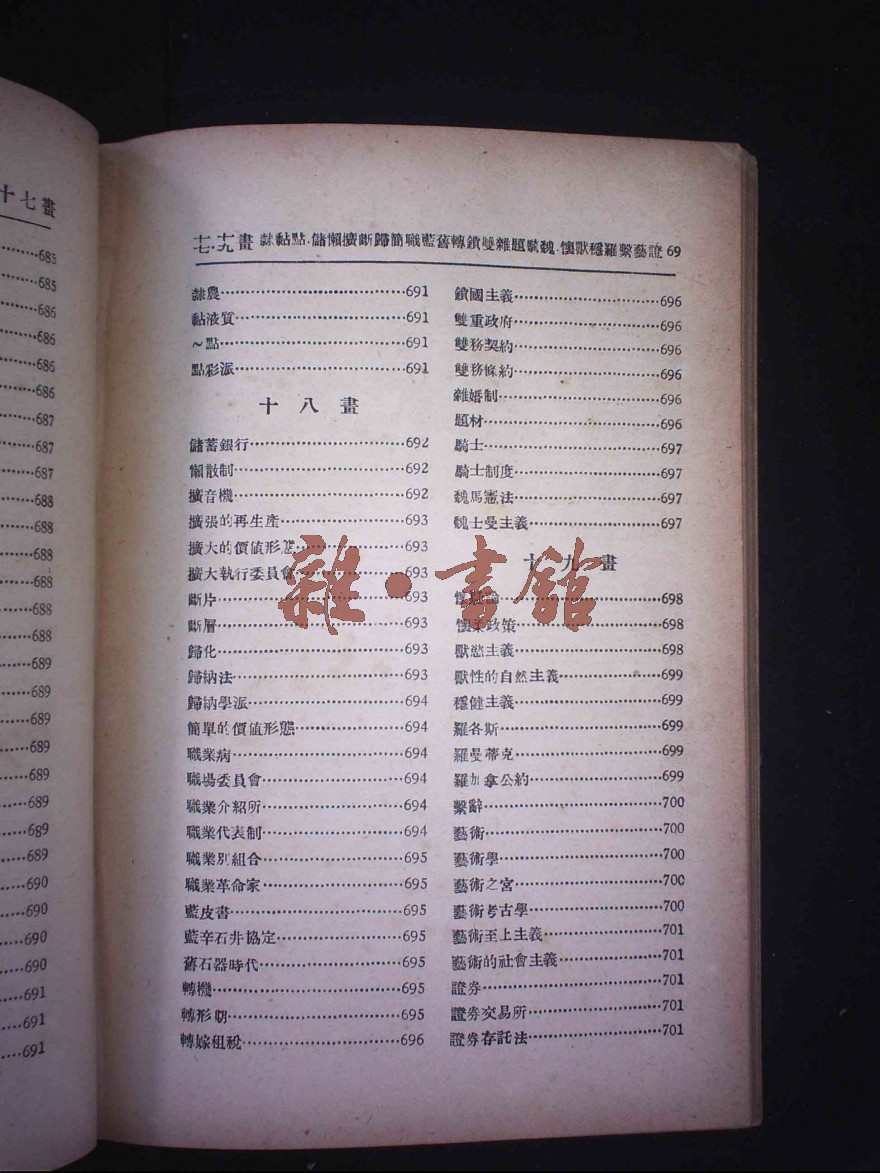 十七畫
685
685
686
686
686
686
687
687
687
688
688
688
688
688
688
689
689
689
689
689
689
689
689
690
690
690
690
691
691
691
十七・十九畫 隸黏點・儲懶擴斷歸簡職藍舊轉鎖雙雜題騎魏・懷獸穩羅繫藝證 69
隸農 691
黏液質 691
～點 691
點彩派 691
十八畫
儲蓄銀行 692
懶散制 692
擴音機 692
擴張的再生產 693
擴大的價値形態 693
擴大執行委員會 693
斷片 693
斷層 693
歸化 693
歸納法 693
歸納學派 694
簡單的價値形態 694
職業病 694
職場委員會 694
職業介紹所 694
職業代表制 694
職業別組合 695
職業革命家 695
藍皮書 695
藍辛石井協定 695
舊石器時代 695
轉機 695
轉形期 695
轉嫁租稅 696
鎖國主義 696
雙重政府 696
雙務契約 696
雙務條約 696
雜婚制 696
題材 696
騎士 697
騎士制度 697
魏馬憲法 697
魏士曼主義 697
十九畫
懷疑論 698
懷柔政策 698
獸慾主義 698
獸性的自然主義 699
穩健主義 699
羅各斯 699
羅曼蒂克 699
羅加拿公約 699
繫辭 700
藝術 700
藝術學 700
藝術之宮 700
藝術考古學 700
藝術至上主義 701
藝術的社會主義 701
證券 701
證券交易所 701
證券存託法 701
雜・書館